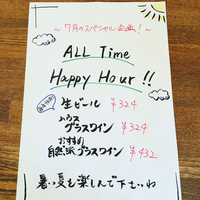 ～7月のスペシャル企画！～
ALL Time
Happy Hour !!
生ビール ¥324
ハウス
グラスワイン ¥324
おすすめ
自然派グラスワイン ¥432
暑い夏も楽しんで下さいね